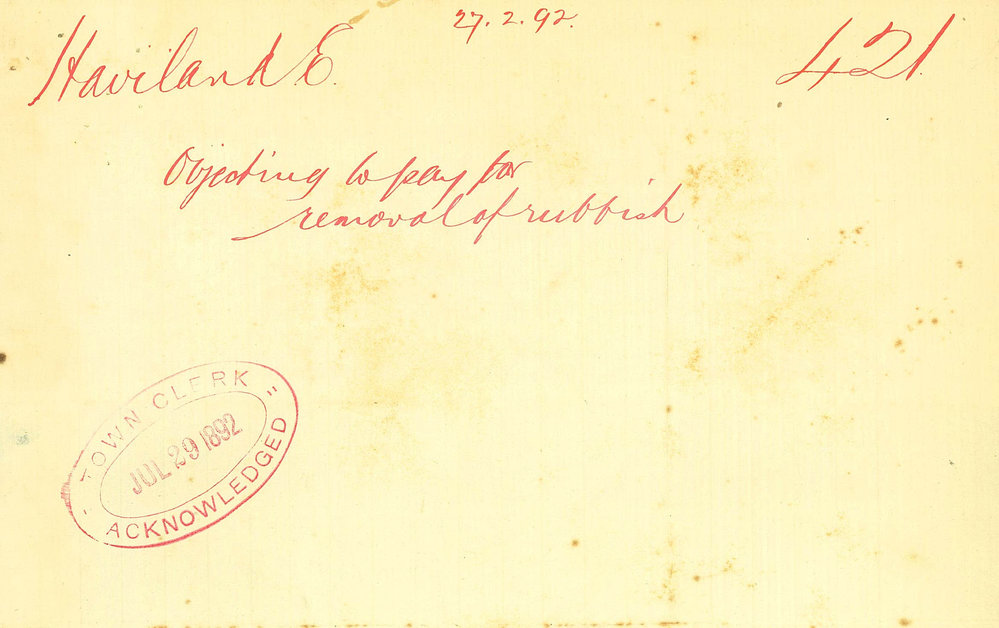 27.2.92.
Haviland E. 421
Objecting to pay for
removal of rubbish
TOWN CLERK
JUL 29 1892
ACKNOWLEDGED